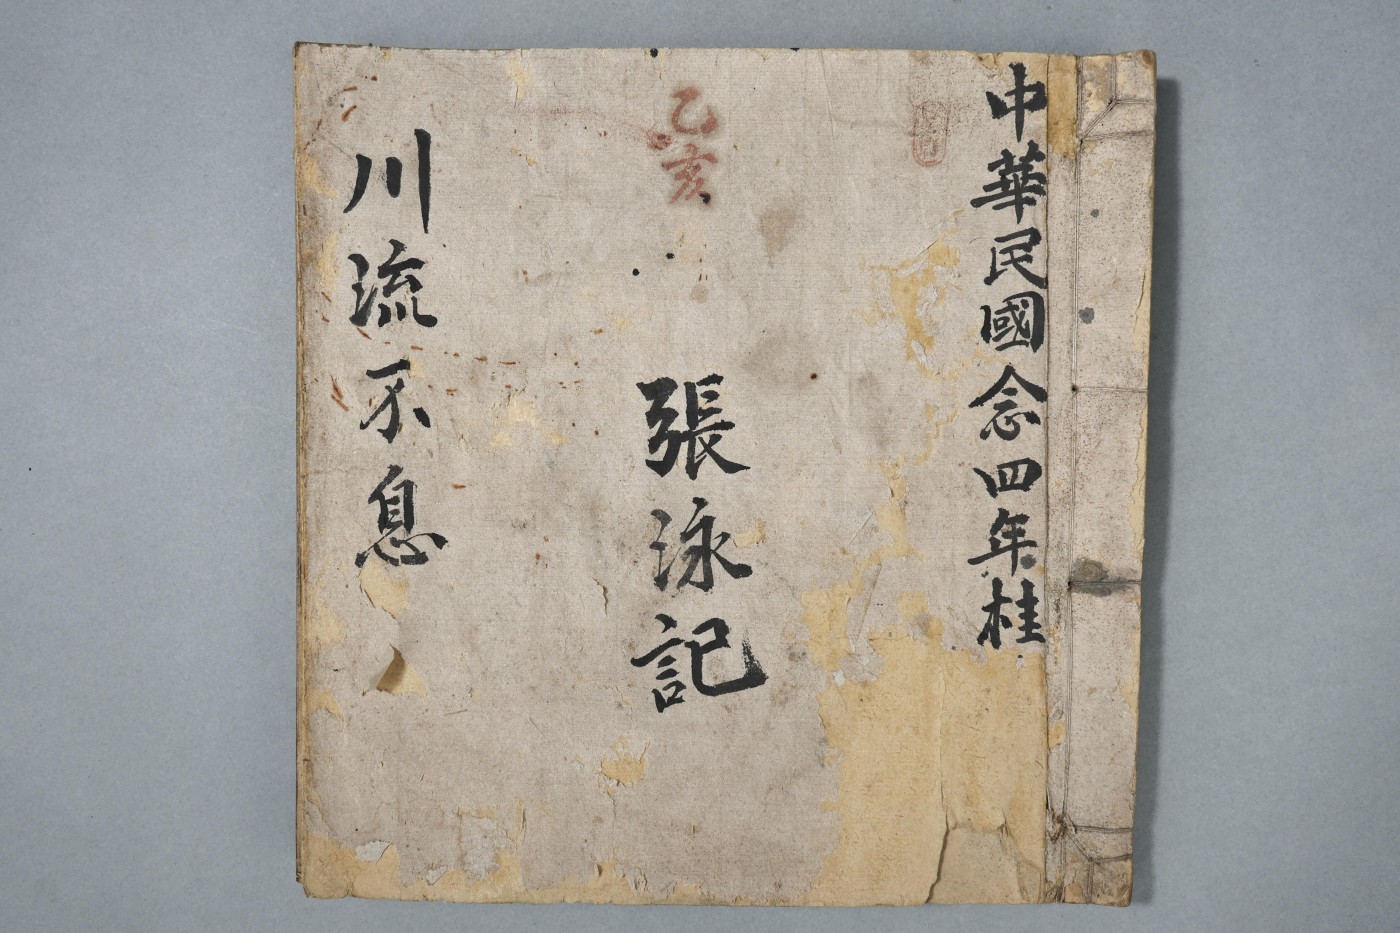 中華民國念四年桂
乙亥
張泳記
川流不息